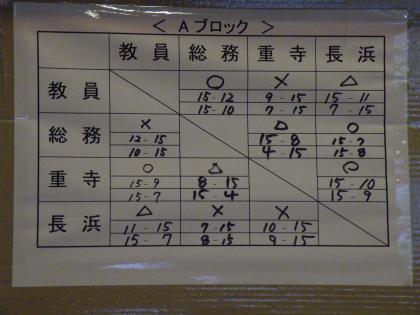 ＜ Aブロック ＞
教員 総務 重寺 長浜
教員 ○ × △
15-12 9-15 15-11
15-10 7-15 7-15
総務 × △ ○
12-15 15-8 15-7
10-15 4-15 15-8
重寺 ○ △ ○
15-9 8-15 15-10
15-7 15-4 15-9
長浜 △ × ×
11-15 7-15 10-15
15-7 8-15 9-15